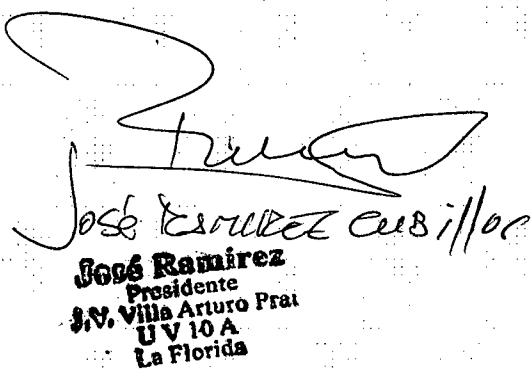 José Ramirez Cubillos
José Ramírez
Presidente
J.V. Villa Arturo Prat
U V 10 A
La Florida